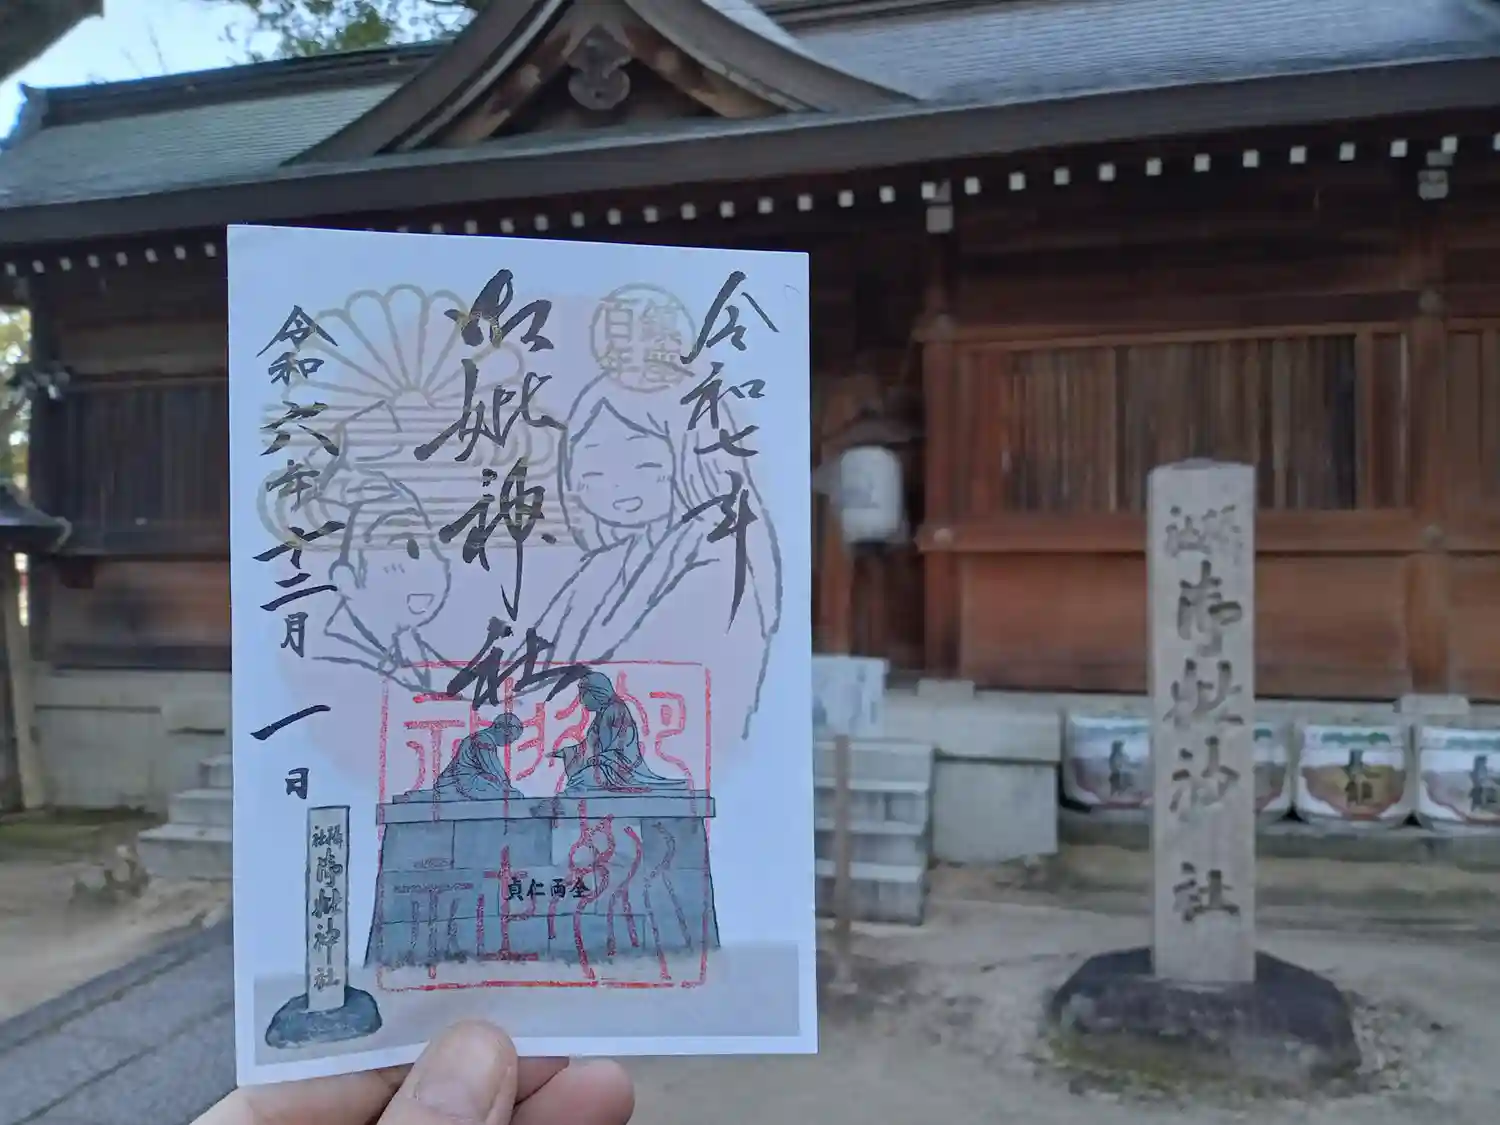 令和七年
鎮座
百年
御妣神社
令和六年十二月一日
貞仁両全
攝社
御妣神社
攝社
御妣神社